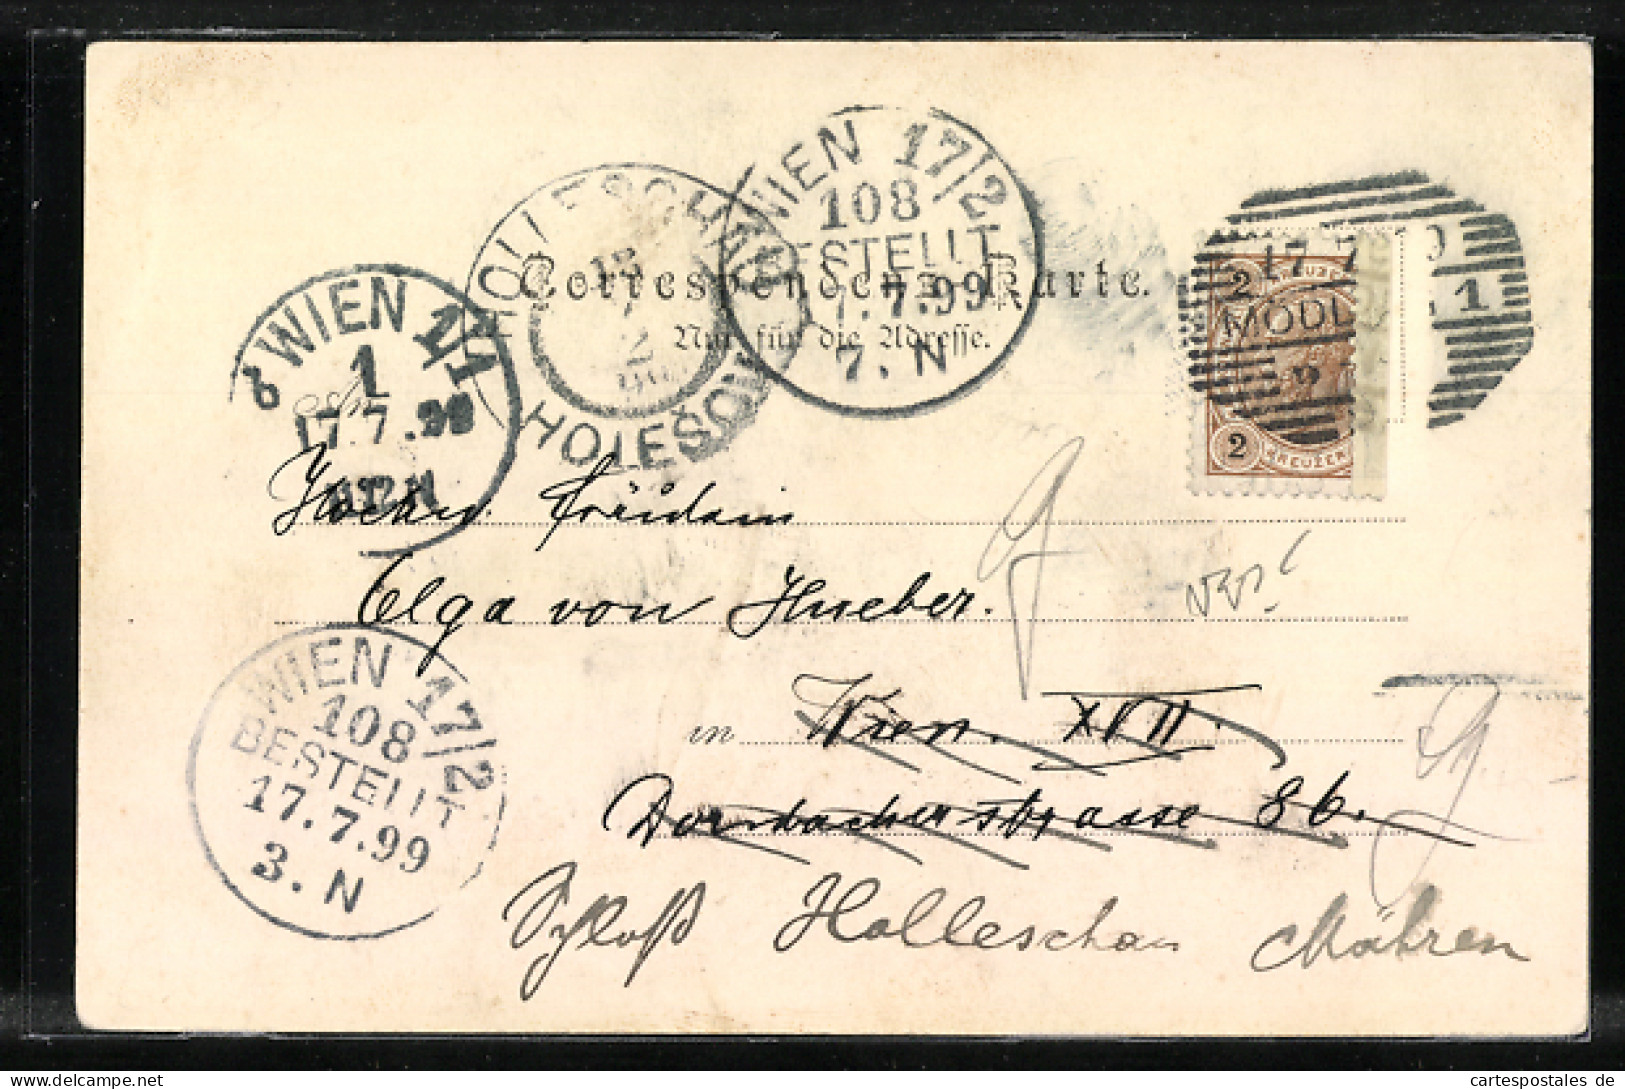 WIEN 17/2
108
BESTELLT
17.7.99
7. N
HOLLESCHAU
HOLEŠOV
17 7
MÖDL
1
2 KREUZER
2 KREUZER
Correspondenz-Karte.
Nur für die Adresse.
WIEN 1/1
1
17.7.99
Hochw. Fräulein
Olga von Hueber.
in Wien. XVII.
Dornbacherstrasse 86.
WIEN 17/2
108
BESTELLT
17.7.99
3. N
Schloß Holleschau Mähren
www.cartespostales.de